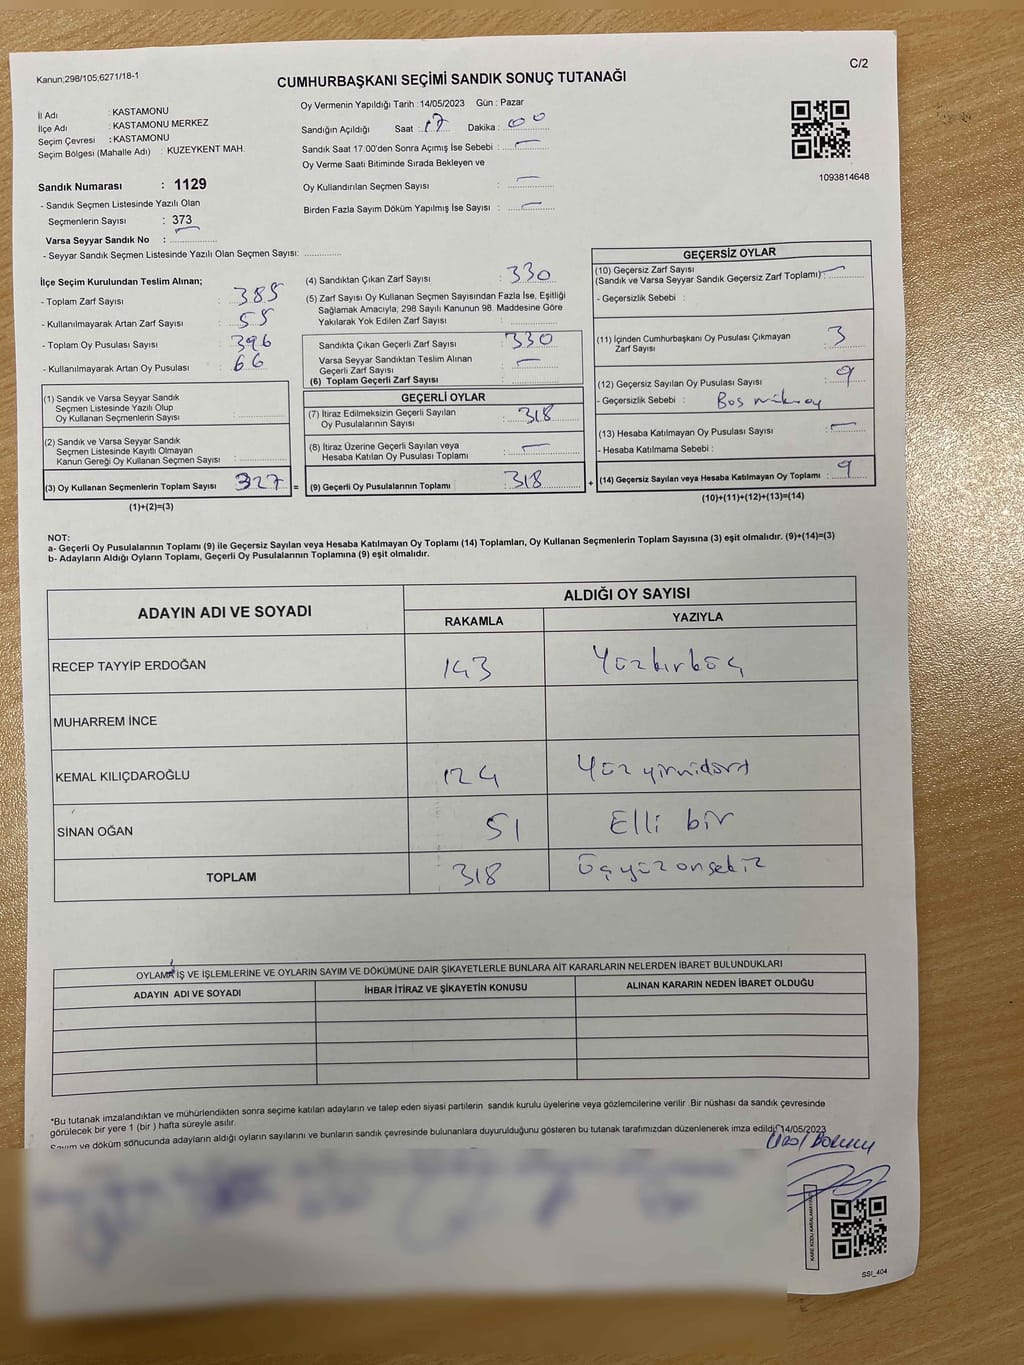 Kanun:298/105;6271/18-1
C/2
CUMHURBAŞKANI SEÇİMİ SANDIK SONUÇ TUTANAĞI
İl Adı : KASTAMONU
İlçe Adı : KASTAMONU MERKEZ
Seçim Çevresi : KASTAMONU
Seçim Bölgesi (Mahalle Adı) : KUZEYKENT MAH.
Oy Vermenin Yapıldığı Tarih : 14/05/2023 Gün : Pazar
Sandığın Açıldığı Saat : 17 Dakika : 00
Sandık Saat 17:00'den Sonra Açımış İse Sebebi : —
Oy Verme Saati Bitiminde Sırada Bekleyen ve
Oy Kullandırılan Seçmen Sayısı : —
Birden Fazla Sayım Döküm Yapılmış İse Sayısı : —
1093814648
Sandık Numarası : 1129
- Sandık Seçmen Listesinde Yazılı Olan
Seçmenlerin Sayısı : 373
Varsa Seyyar Sandık No :
- Seyyar Sandık Seçmen Listesinde Yazılı Olan Seçmen Sayısı:
İlçe Seçim Kurulundan Teslim Alınan;
- Toplam Zarf Sayısı : 385
- Kullanılmayarak Artan Zarf Sayısı : 55
- Toplam Oy Pusulası Sayısı : 396
- Kullanılmayarak Artan Oy Pusulası : 66
(1) Sandık ve Varsa Seyyar Sandık
Seçmen Listesinde Yazılı Olup
Oy Kullanan Seçmenlerin Sayısı :
(2) Sandık ve Varsa Seyyar Sandık
Seçmen Listesinde Kayıtlı Olmayan
Kanun Gereği Oy Kullanan Seçmen Sayısı :
(3) Oy Kullanan Seçmenlerin Toplam Sayısı 327 =
(1)+(2)=(3)
(4) Sandıktan Çıkan Zarf Sayısı : 330
(5) Zarf Sayısı Oy Kullanan Seçmen Sayısından Fazla İse, Eşitliği
Sağlamak Amacıyla, 298 Sayılı Kanunun 98. Maddesine Göre
Yakılarak Yok Edilen Zarf Sayısı :
Sandıkta Çıkan Geçerli Zarf Sayısı : 330
Varsa Seyyar Sandıktan Teslim Alınan
Geçerli Zarf Sayısı : —
(6) Toplam Geçerli Zarf Sayısı :
GEÇERLİ OYLAR
(7) İtiraz Edilmeksizin Geçerli Sayılan
Oy Pusulalarının Sayısı : 318
(8) İtiraz Üzerine Geçerli Sayılan veya
Hesaba Katılan Oy Pusulası Toplamı : —
(9) Geçerli Oy Pusulalarının Toplamı : 318 +
GEÇERSİZ OYLAR
(10) Geçersiz Zarf Sayısı
(Sandık ve Varsa Seyyar Sandık Geçersiz Zarf Toplamı): —
- Geçersizlik Sebebi :
(11) İçinden Cumhurbaşkanı Oy Pusulası Çıkmayan
Zarf Sayısı : 3
(12) Geçersiz Sayılan Oy Pusulası Sayısı : 9
- Geçersizlik Sebebi : Boş
(13) Hesaba Katılmayan Oy Pusulası Sayısı : —
- Hesaba Katılmama Sebebi :
(14) Geçersiz Sayılan veya Hesaba Katılmayan Oy Toplamı : 9
(10)+(11)+(12)+(13)=(14)
NOT:
a- Geçerli Oy Pusulalarının Toplamı (9) ile Geçersiz Sayılan veya Hesaba Katılmayan Oy Toplamı (14) Toplamları, Oy Kullanan Seçmenlerin Toplam Sayısına (3) eşit olmalıdır. (9)+(14)=(3)
b- Adayların Aldığı Oyların Toplamı, Geçerli Oy Pusulalarının Toplamına (9) eşit olmalıdır.
ADAYIN ADI VE SOYADI ALDIĞI OY SAYISI
RAKAMLA YAZIYLA
RECEP TAYYİP ERDOĞAN 143 Yüzkırküç
MUHARREM İNCE
KEMAL KILIÇDAROĞLU 124 Yüz yirmidört
SİNAN OĞAN 51 Elli bir
TOPLAM 318 Üçyüz onsekiz
OYLAMA İŞ VE İŞLEMLERİNE VE OYLARIN SAYIM VE DÖKÜMÜNE DAİR ŞİKAYETLERLE BUNLARA AİT KARARLARIN NELERDEN İBARET BULUNDUKLARI
ADAYIN ADI VE SOYADI İHBAR İTİRAZ VE ŞİKAYETİN KONUSU ALINAN KARARIN NEDEN İBARET OLDUĞU
*Bu tutanak imzalandıktan ve mühürlendikten sonra seçime katılan adayların ve talep eden siyasi partilerin sandık kurulu üyelerine veya gözlemcilerine verilir .Bir nüshası da sandık çevresinde
görülecek bir yere 1 (bir ) hafta süreyle asılır.
Sayım ve döküm sonucunda adayların aldığı oyların sayılarını ve bunların sandık çevresinde bulunanlara duyurulduğunu gösteren bu tutanak tarafımızdan düzenlenerek imza edildi. 14/05/2023
SSI_404